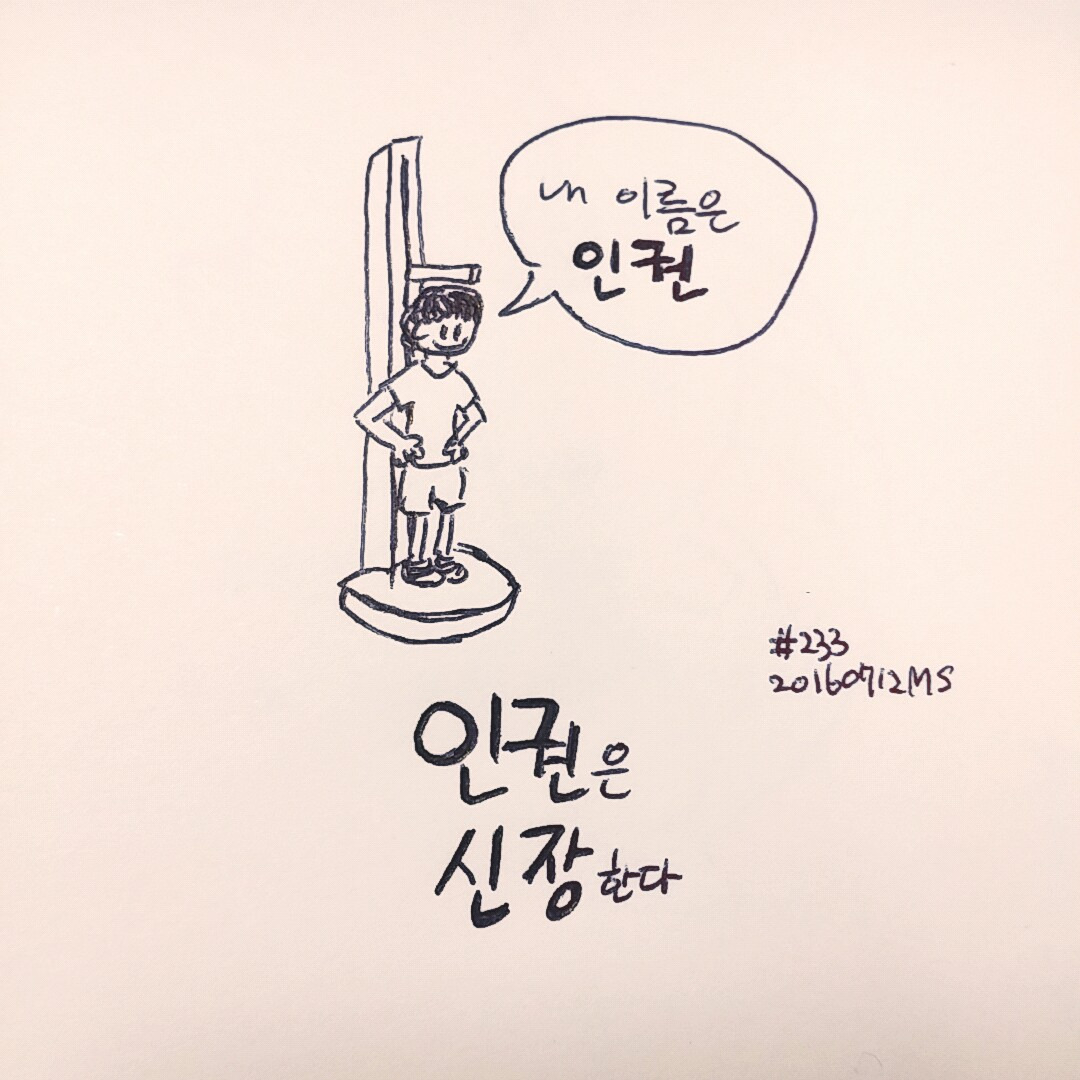 내 이름은
인권
#233
20160712MS
인권은
신장한다